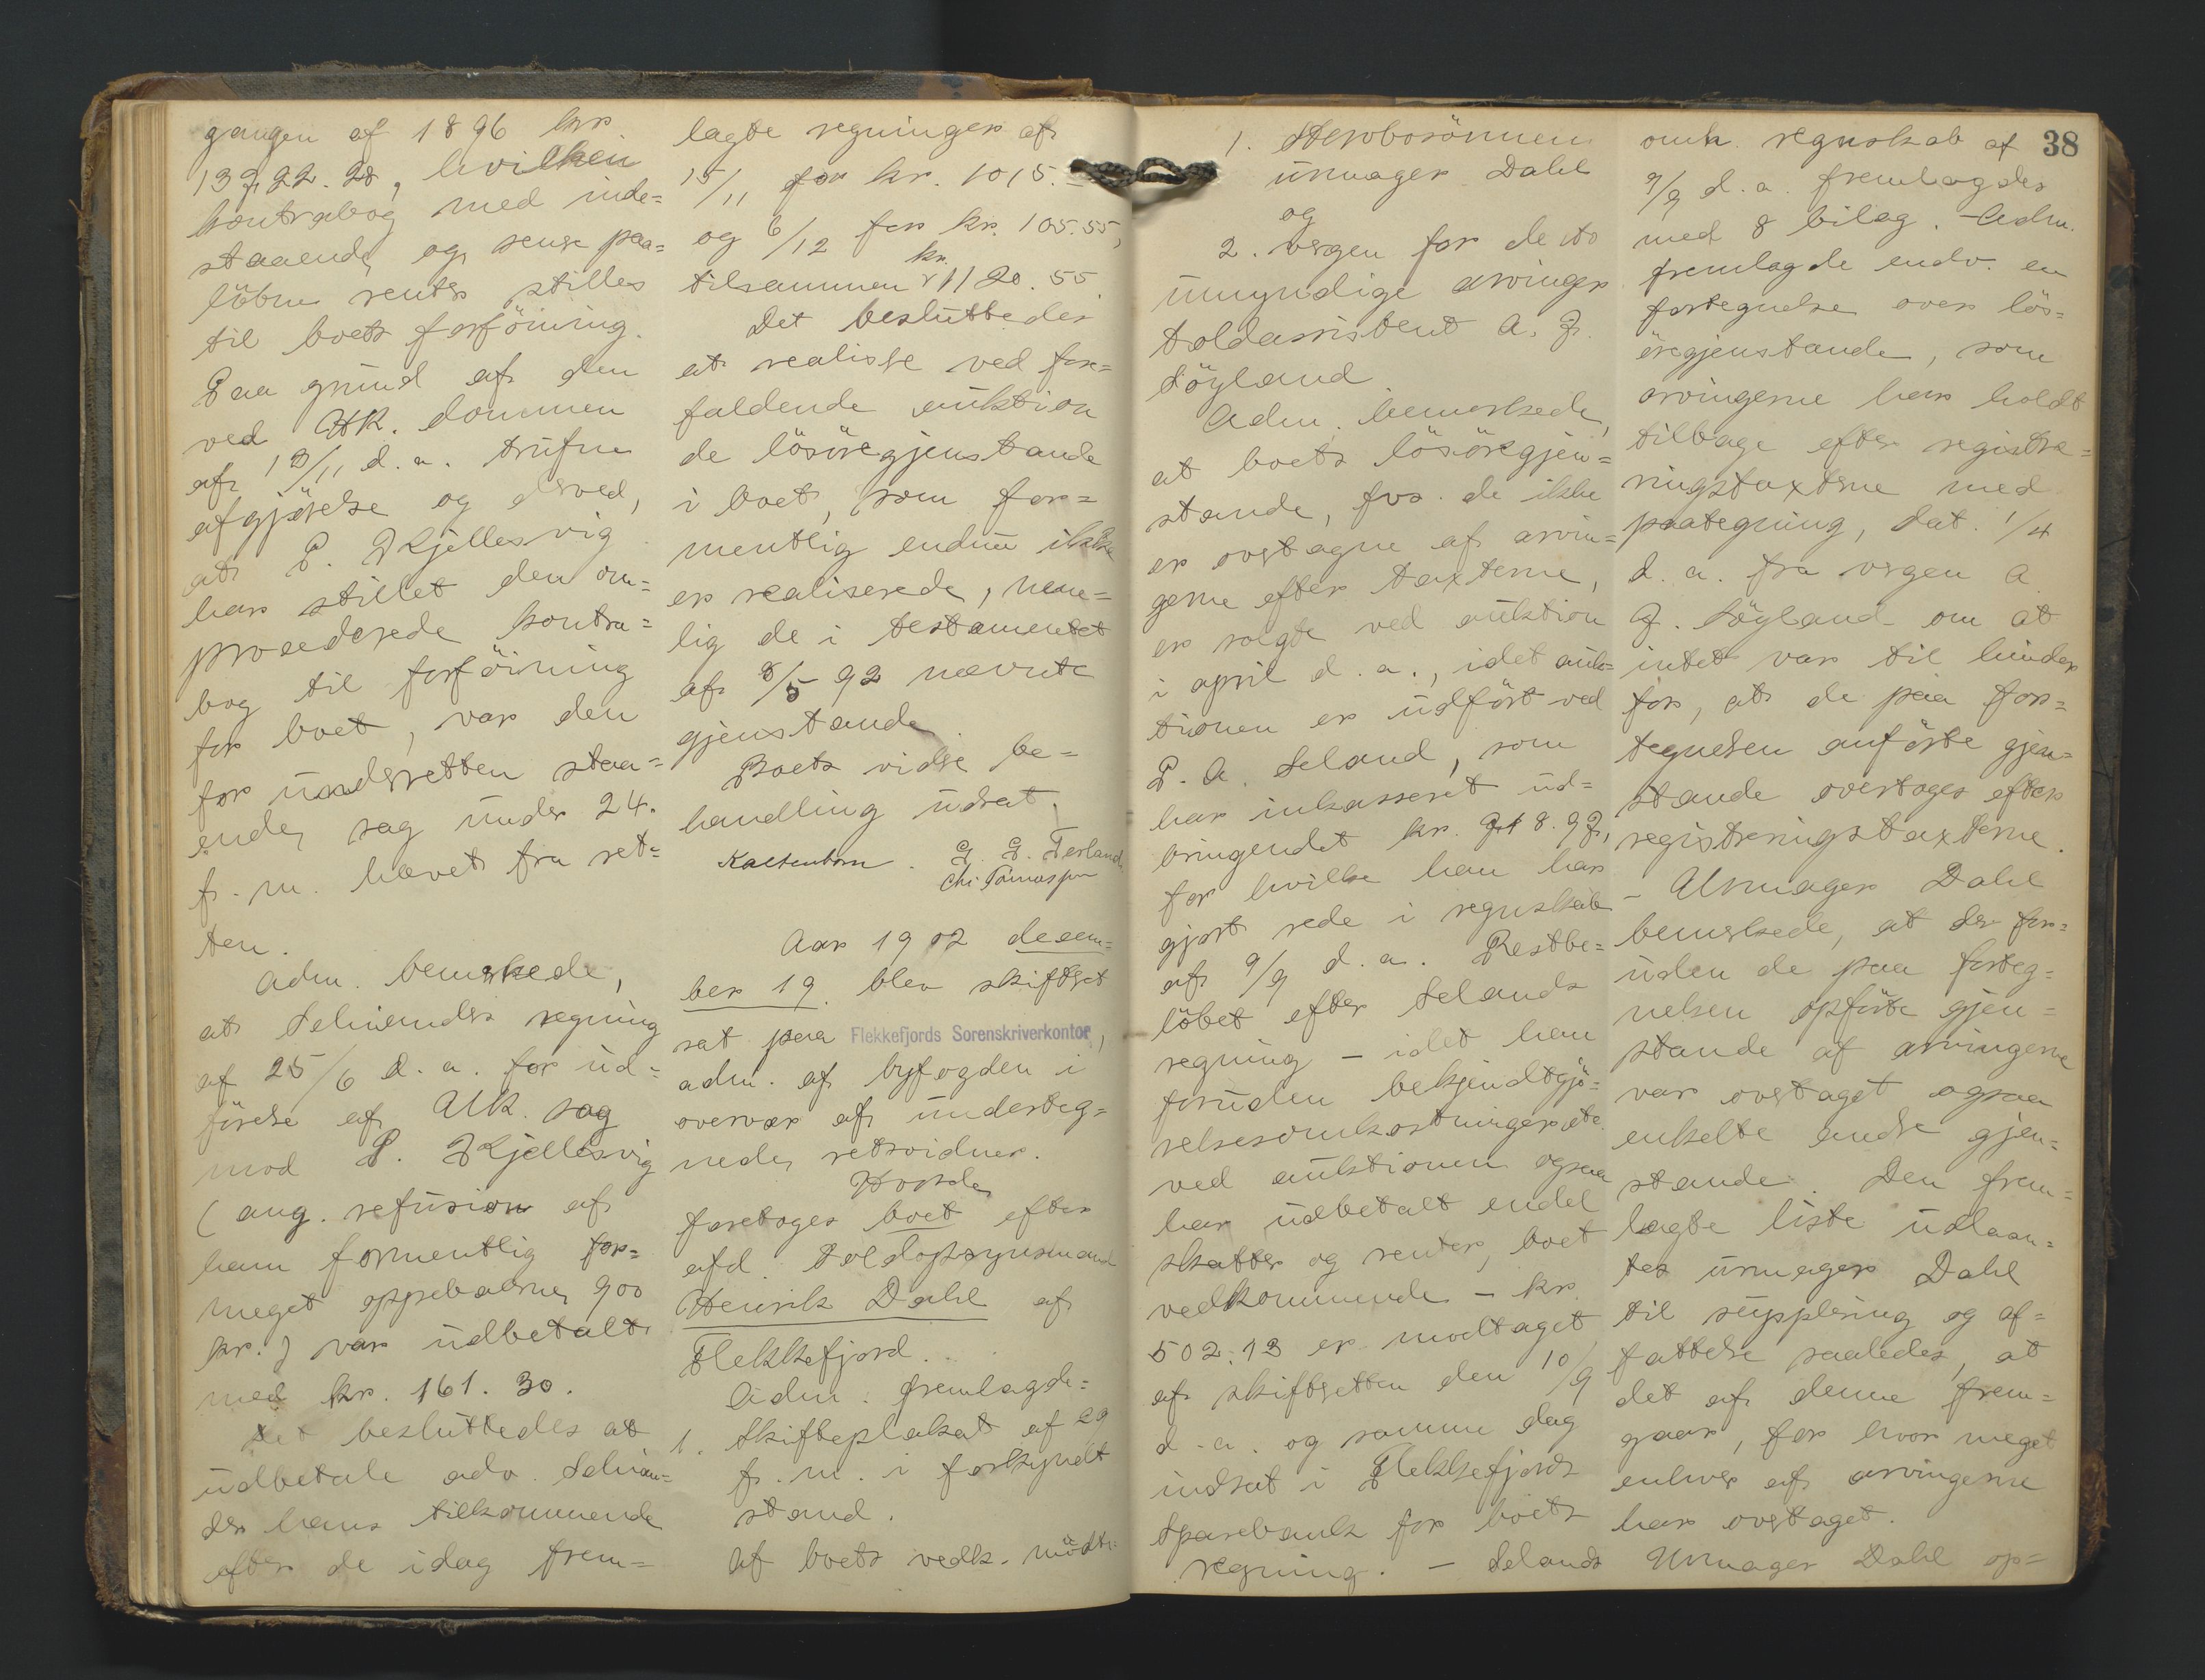 gangen af 1896 kr.
13722.28, hvilken
kontrabog med inde=
staaende og senere paa=
löbne renter stilles
til boets forföining.
Paa grund af den
ved HR. dommen
af 13/11 d. a. trufne
afgjörelse og derved,
at P. Kjellesvig
har stillet den om=
procederede kontra=
bog til forföining
for boet, var den
for underretten staa=
ende sag under 24.
f. m. hævet fra ret=
ten.
Adm. bemerkede,
at Schrøders regning
af 25/6 d. a. for ud=
förelse af UR. sag
mod P. Kjellesvig
(ang. refusion af
ham formentlig for=
meget oppebaarne 900
kr.) var udbetalt
med kr. 161.30.
Det besluttedes at
udbetale adv.
hans tilkommende
efter de idag frem=
lagte regninger af
15/11 for kr. 1015.-
og 6/12 for kr. 105.55,
tilsammen kr. 1120.55
Det besluttedes
at realisere ved fore=
faldende auktion
de lösöregjenstande
i boet, som for=
mentlig endnu ikke
er realiserede, nem=
lig de i testamentet
af 8/5 92 nævnte
gjenstande
Boets videre be=
handling udsat.
Kaltenborn. G. G. Terland
Chr. Tomassen
Aar 1902 decem=
ber 19. blev skifteret
sat paa Flekkefjords Sorenskriverkontor,
adm. af byfogden i
overvær af underteg=
nede retsvidner.
Hvorda
foretoges boet efter
afd. Toldopsynsmand
Henrik Dahl af
Flekkefjord.
Adm. fremlagde=
1. Skifteplakat af 29
f. m. i forkyndt
stand.
Af boets vedk. mödte=
1. Stervbosönnen
urmager Dahl
og
2. vergen for de to
umyndige arvinger
toldassistent A. J.
Söyland
Adm. bemerkede,
at boets lösöregjen=
stande, fvs. de ikke
er overtagne af arvin=
gerne efter taxterne,
er solgte ved auktion
i april d. a., idet auk=
tionen er udfört ved
P. A. Seland, som
har inkasseret ud=
bringendet kr. 718.97,
for hvilke han har
gjort rede i regnskab
af 9/9 d. a. Restbe=
löbet efter Selands
regning - idet han
foruden bekjendtgjö=
relsesomkostninger etc.
ved auktionen ogsaa
har udbetalt endel
skatter og renter, boet
vedkommende - kr.
502.13 er modtaget
af skifteretten den 10/9
d. a. og samme dag
indsat i Flekkefjords
Sparebank for boets
regning. - Selands
38
omh. regnskab af
9/9 d. a. fremlagdes
med 8 bilag. - Adm.
fremlagde endv. en
fortegnelse over lös=
öregjenstande, som
arvingerne har holdt
tilbage efter registre=
ringstaxterne med
paategning, dat. 1/4
d. a. fra vergen A.
J. Söyland om at
intet var til hinder
for, at de paa for=
tegnelsen anförte gjen=
stande overtoges efter
registreringstaxterne.
- Urmager Dahl
bemerkede, at der for=
uden de paa forteg=
nelsen opförte gjen=
stande af arvingerne
var overtaget ogsaa
enkelte andre gjen=
stande. Den frem=
lagte liste udlaan=
tes urmager Dahl
til supplering og af=
fattelse saaledes, at
det af denne frem=
gaar, for hvor meget
enhver af arvingerne
har overtaget.
Urmager Dahl op=